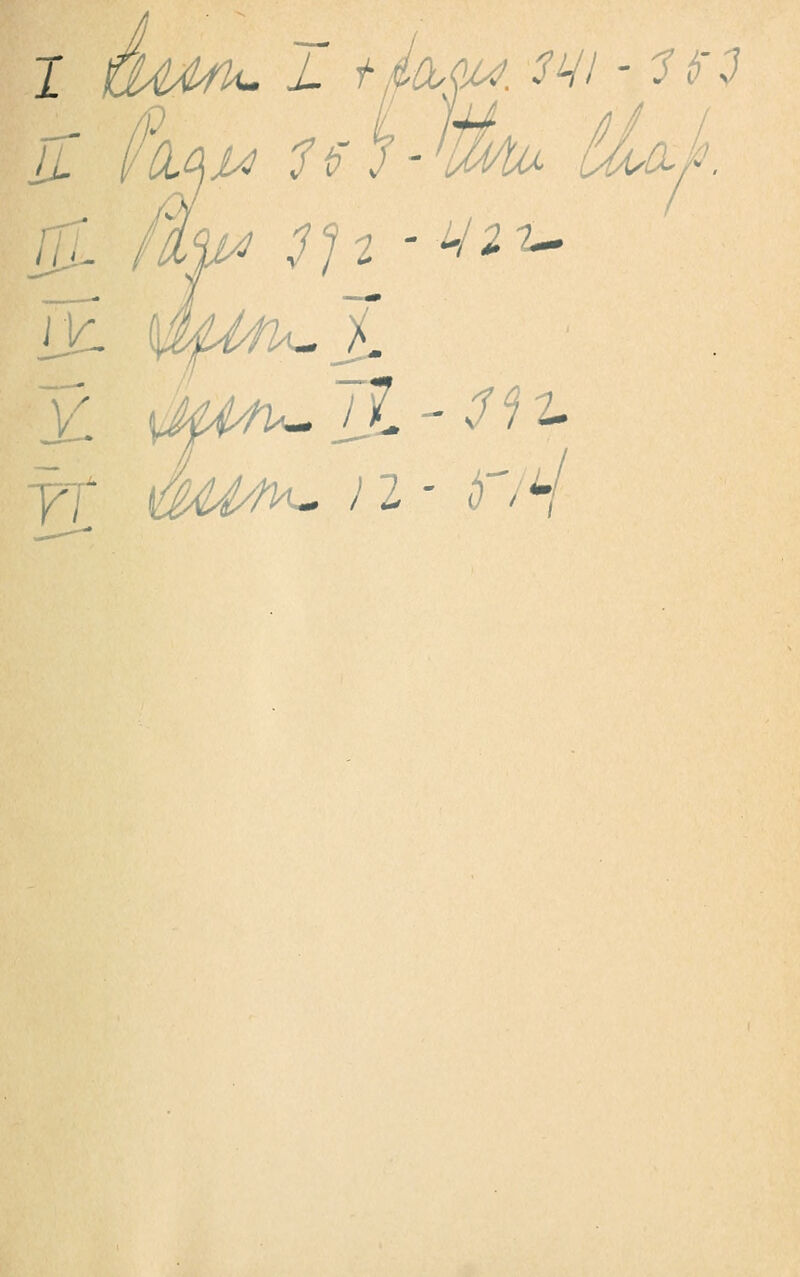 I Lesson I + pages. 341 - 353
II Pages 353 - Thru Chap.
III Pages 372 - 422
IV Lesson X
V Lesson IX - 392
VI Lesson 12 - 514